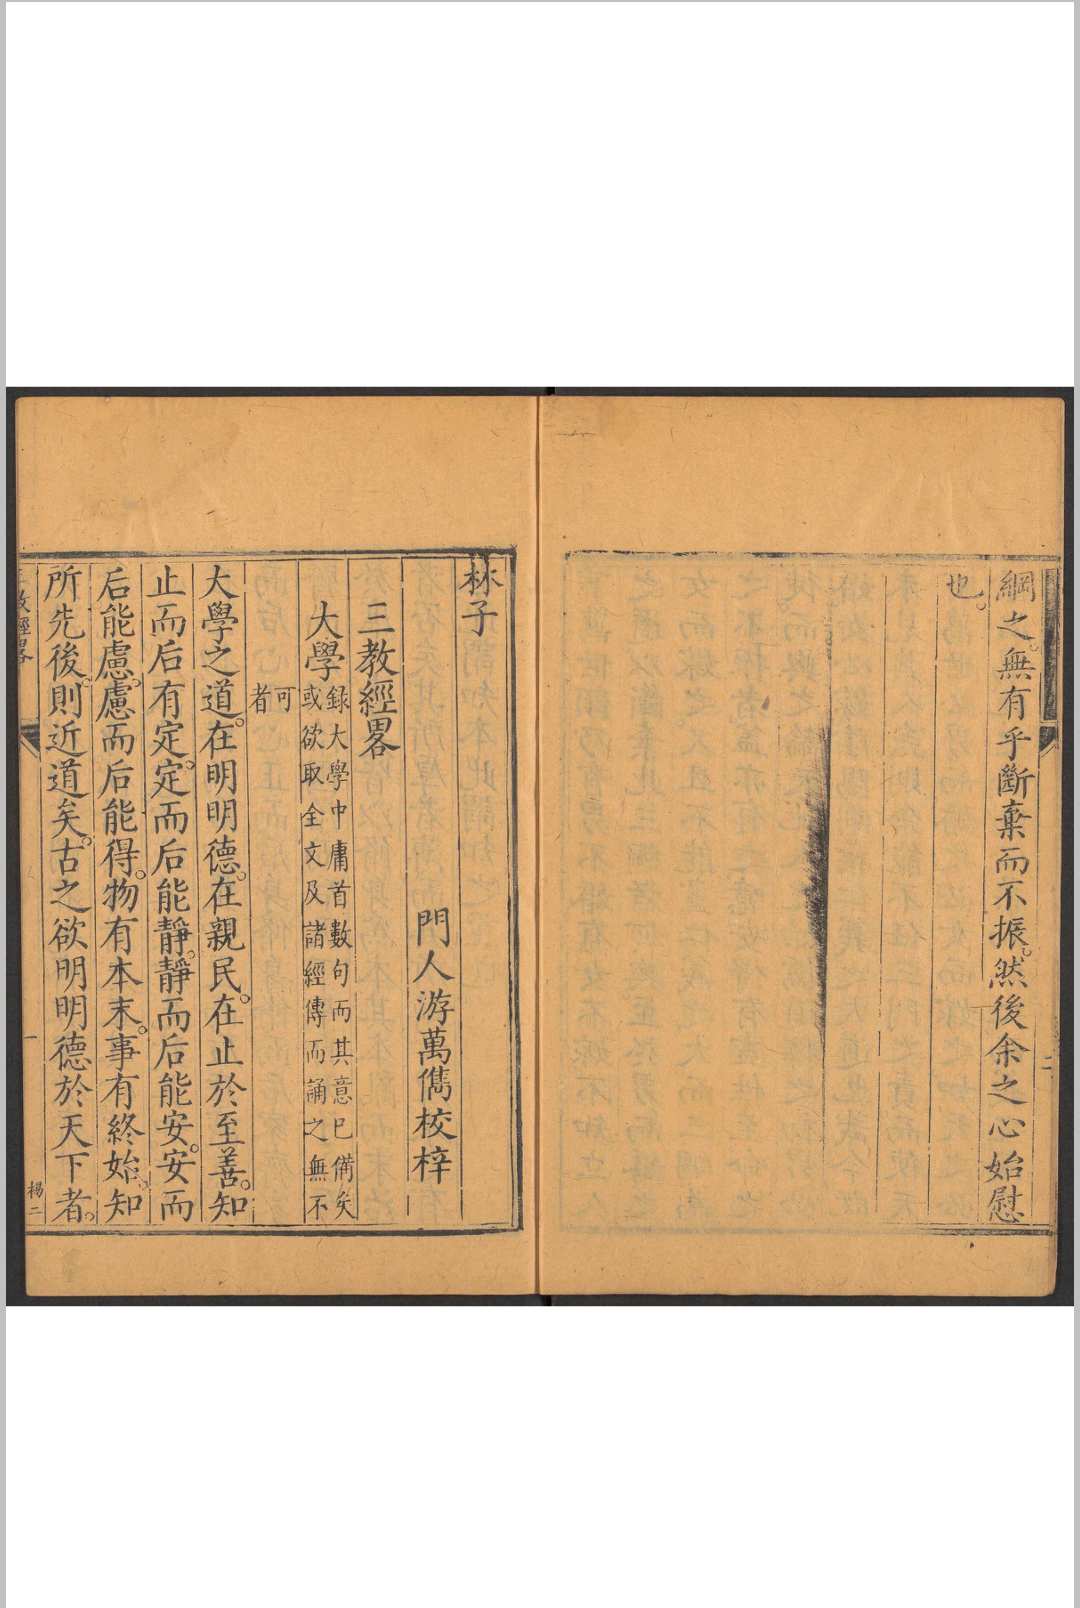 綱之。無有乎斷棄而不振。然後余之心始慰
也。
林子
門人游萬儁校梓
三教經畧
大學錄大學中庸首數句而其意已備矣
或欲取全文及諸經傳而誦之無不
可
者
大學之道。在明明德。在親民。在止於至善。知
止而后有定。定而后能靜。靜而后能安。安而
后能慮。慮而后能得。物有本末。事有終始。知
所先後。則近道矣。古之欲明明德於天下者。
教經畧
一
楊二